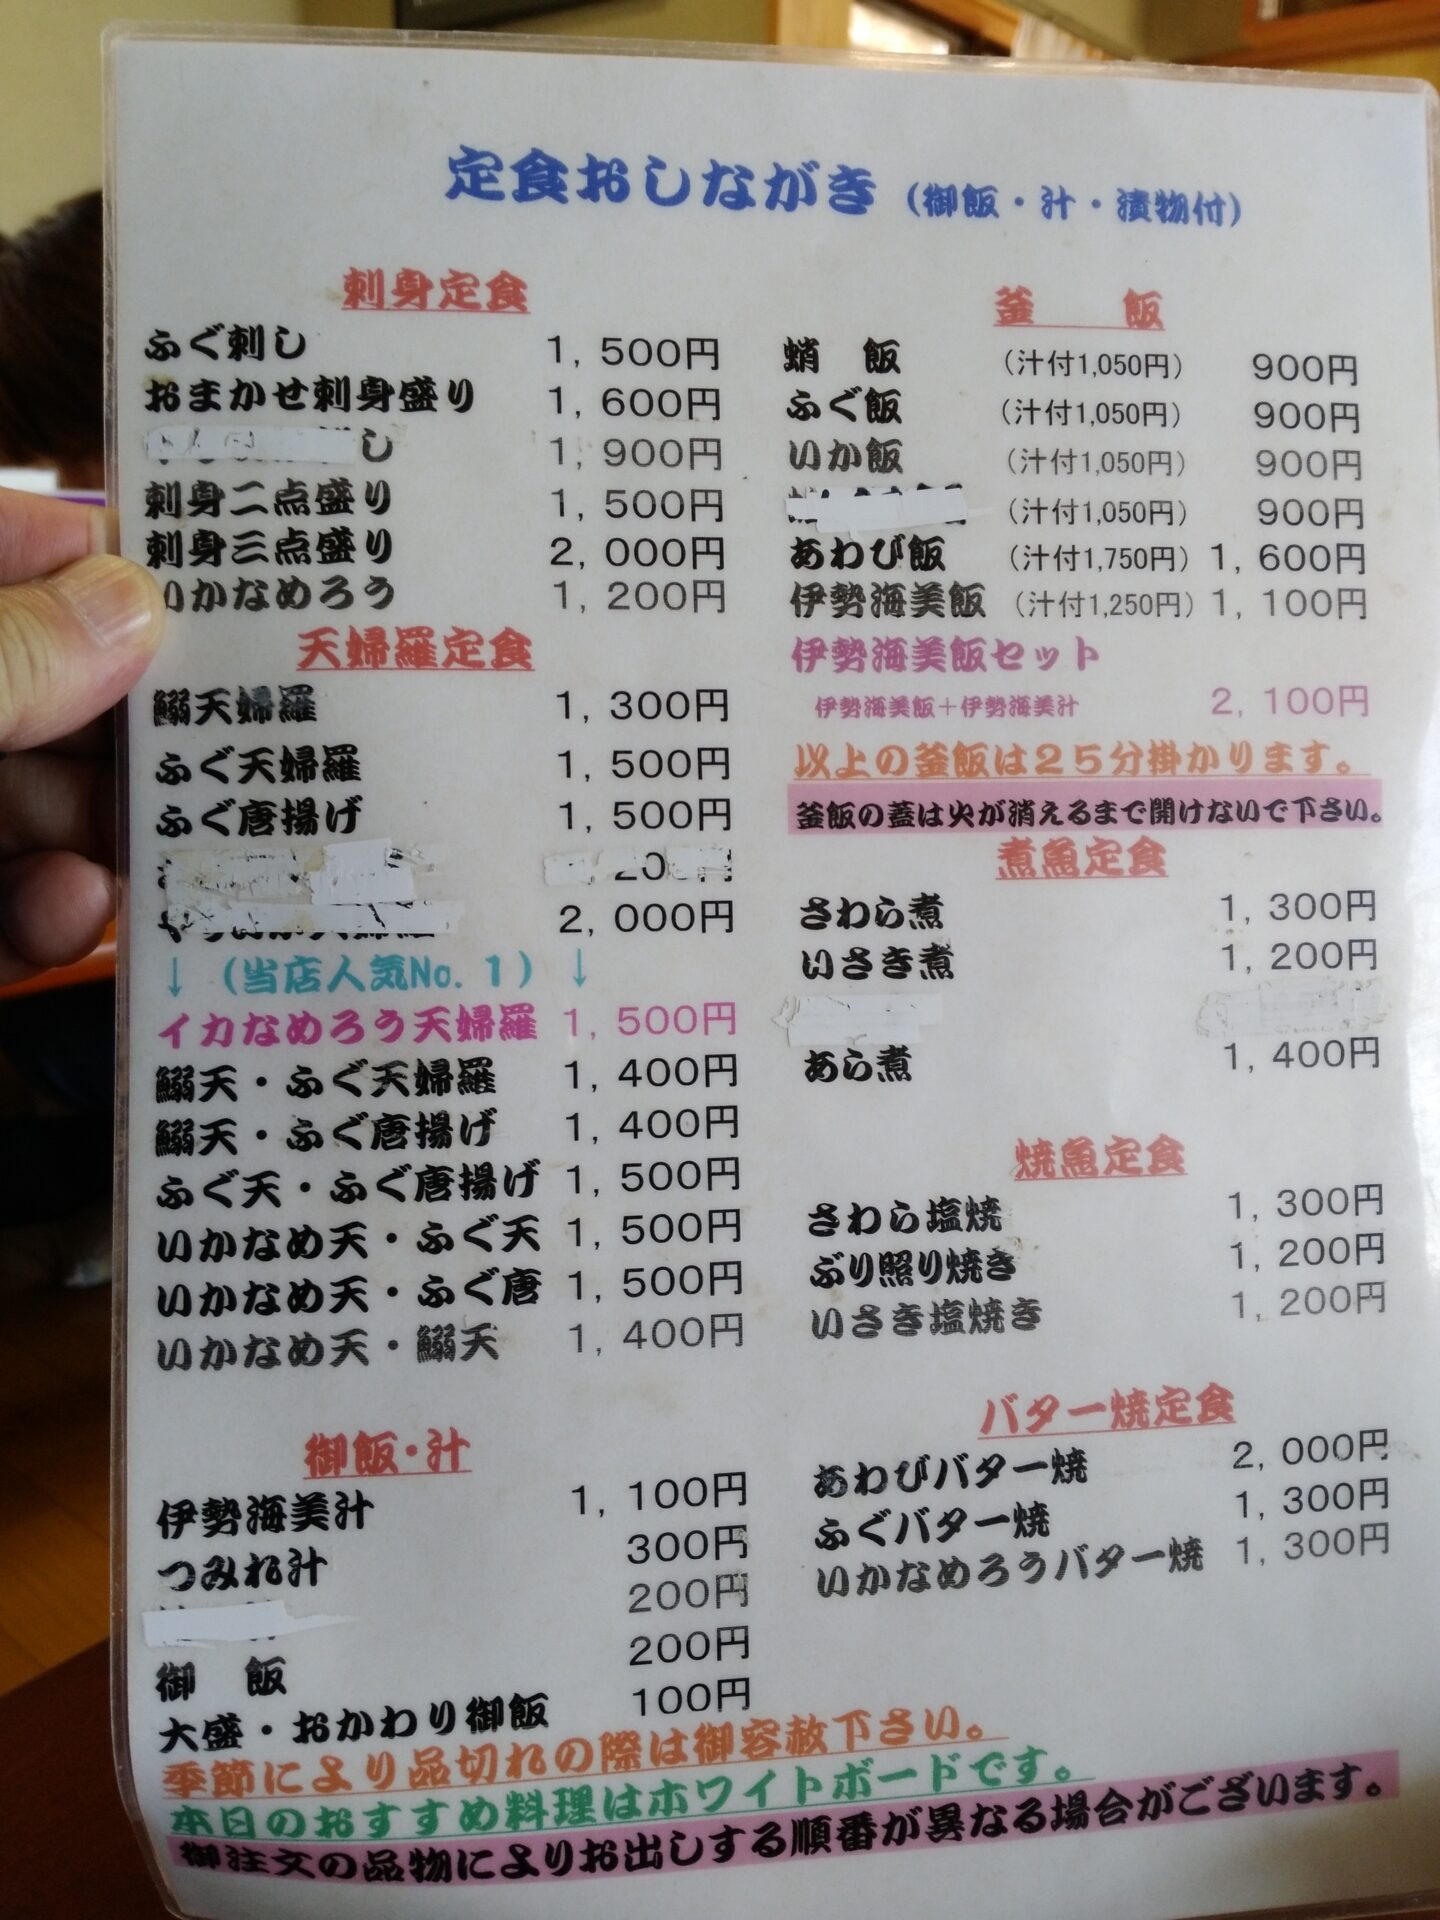 定食おしながき（御飯・汁・漬物付）
刺身定食
ふぐ刺し 1,500円
おまかせ刺身盛り 1,600円
し 1,900円
刺身二点盛り 1,500円
刺身三点盛り 2,000円
いかなめろう 1,200円
天婦羅定食
鰯天婦羅 1,300円
ふぐ天婦羅 1,500円
ふぐ唐揚げ 1,500円
2,000円
↓（当店人気No.1）↓
イカなめろう天婦羅 1,500円
鰯天・ふぐ天婦羅 1,400円
鰯天・ふぐ唐揚げ 1,400円
ふぐ天・ふぐ唐揚げ 1,500円
いかなめ天・ふぐ天 1,500円
いかなめ天・ふぐ唐 1,500円
いかなめ天・鰯天 1,400円
御飯・汁
伊勢海美汁 1,100円
つみれ汁 300円
200円
御 飯 200円
大盛・おかわり御飯 100円
釜 飯
蛸 飯 （汁付1,050円） 900円
ふぐ飯 （汁付1,050円） 900円
いか飯 （汁付1,050円） 900円
（汁付1,050円） 900円
あわび飯 （汁付1,750円） 1,600円
伊勢海美飯 （汁付1,250円） 1,100円
伊勢海美飯セット
伊勢海美飯＋伊勢海美汁 2,100円
以上の釜飯は２５分掛かります。
釜飯の蓋は火が消えるまで開けないで下さい。
煮魚定食
さわら煮 1,300円
いさき煮 1,200円
あら煮 1,400円
焼魚定食
さわら塩焼 1,300円
ぶり照り焼き 1,200円
いさき塩焼き 1,200円
バター焼定食
あわびバター焼 2,000円
ふぐバター焼 1,300円
いかなめろうバター焼 1,300円
季節により品切れの際は御容赦下さい。
本日のおすすめ料理はホワイトボードです。
御注文の品物によりお出しする順番が異なる場合がございます。